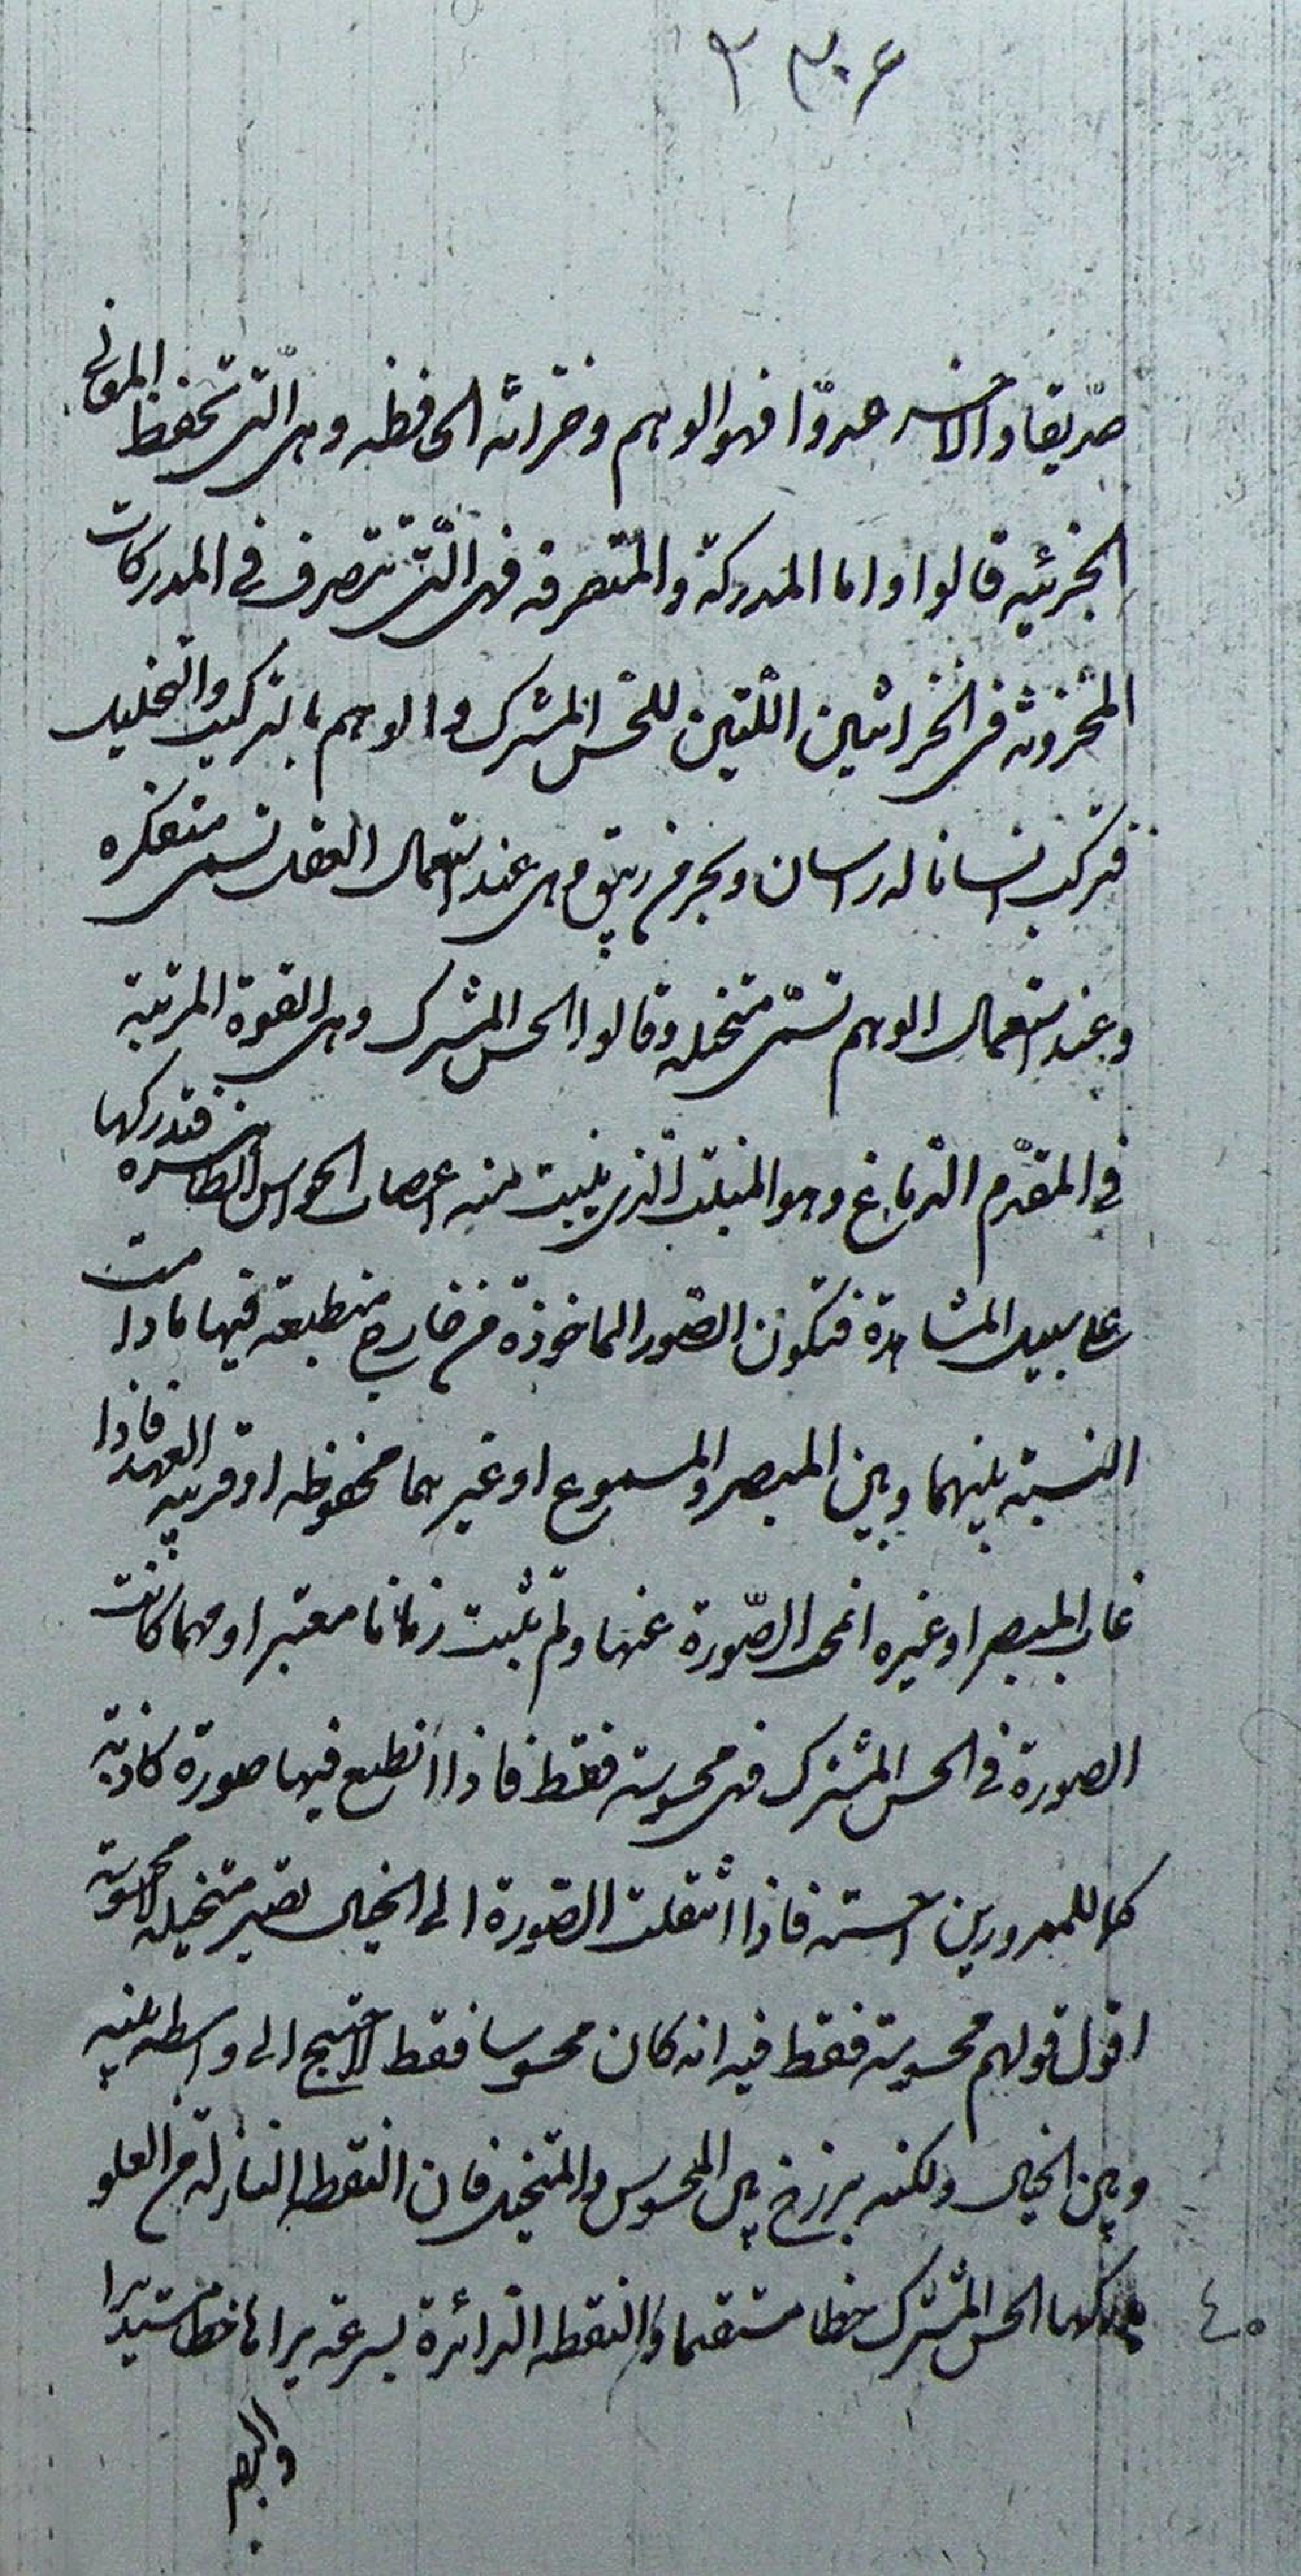 صديقا والاخر عدوّا فهو الوهم وخزانته الحافظه وهى الّتى تحفظ المعانى
الجزئيه قالوا واما المدركة والمتصرفه فهى الّتى تتصرف فى المدركات
المخزونه فى الخزانتين اللّتين للحسّ المشترك والوهم بالتركيب والتحليل
فتركب انسانا له راسان وهى عند استعمال العقل تسمى متفكره
وعند استعمال الوهم تسمّى متخيله وقالوا الحس المشترك وهى القوة المرتبة
فى المقدّم الدماغ وهو المنبت الّذى ينبت منه اعصاب الحواس الظاهره فتدركها
على سبيل المشاهدة فتكون الصّور الماخوذة من خارج منطبعة فيها مادامت
النسبة بينهما وبين المبصر والمسموع او غيرهما محفوظه او قريبه العهد فاذا
غاب المبصر او غيره انمحت الصّورة عنها ولم تثبت زمانا معتبرا ومهما كانت
الصورة فى الحس المشترك فهى محسوسة فقط فاذا انطبع فيها صورة كاذبة
كما للممرورين احسته فاذا انتقلت الصّورة الى الخيال تصير متخيله لا محسوسة
اقول قولهم محسوسة فقط فيه انه كان محسوسا فقط لاحتيج الى واسطه بينه
وبين الخيال ولكنه برزخ بين المحسوس والمتخيل فان النقطه النازلة من العلو
يدركها الحس المشترك خطا مستقيما والنقطه الدائرة بسرعة يراها خطا مستديرا
والبصر